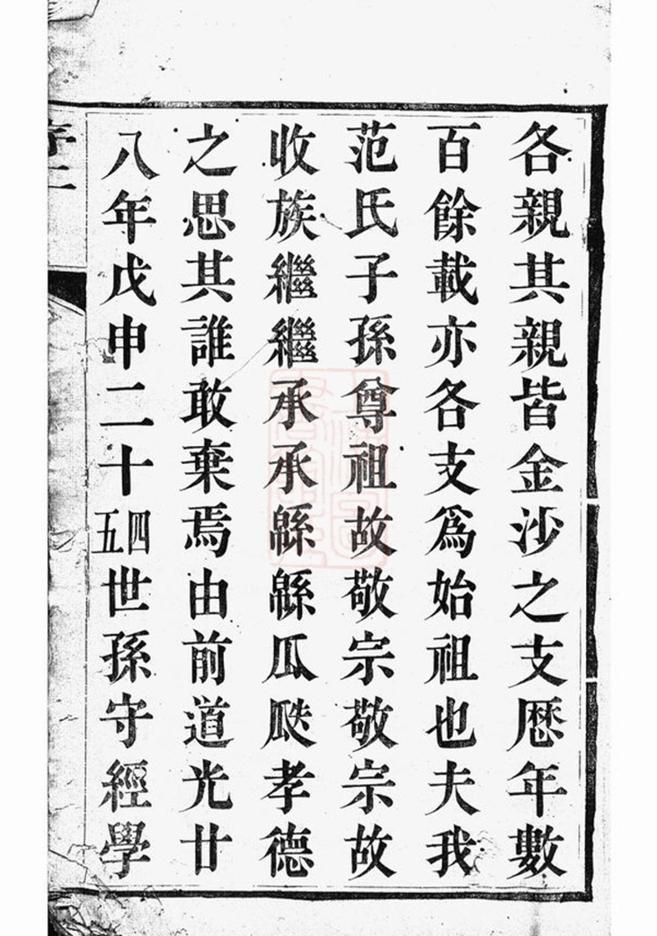 各親其親皆金沙之支歷年數
百餘載亦各支爲始祖也夫我
范氏子孫尊祖故敬宗敬宗故
收族繼繼承承緜緜瓜瓞孝德
之思其誰敢棄焉由前道光廿
八年戊申二十四五世孫守經學